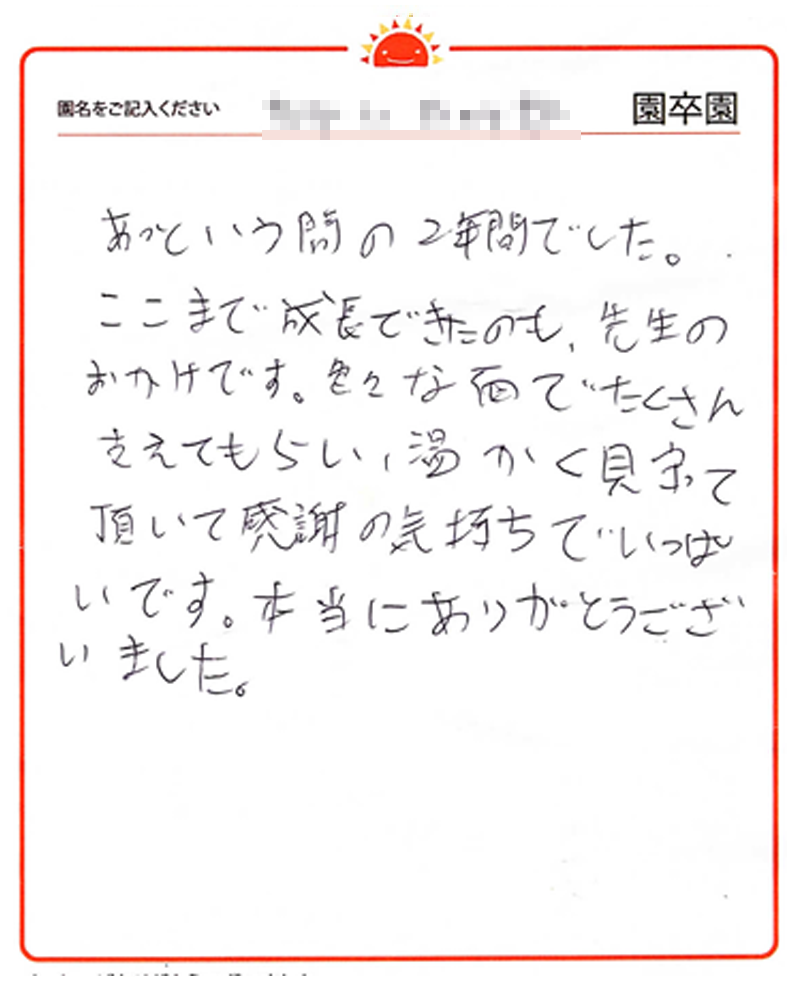 園名をご記入ください 園卒園
あっという間の2年間でした。
ここまで成長できたのも、先生の
おかげです。色々な面でたくさん
支えてもらい、温かく見守って
頂いて感謝の気持ちでいっぱ
いです。本当にありがとうござ
いました。